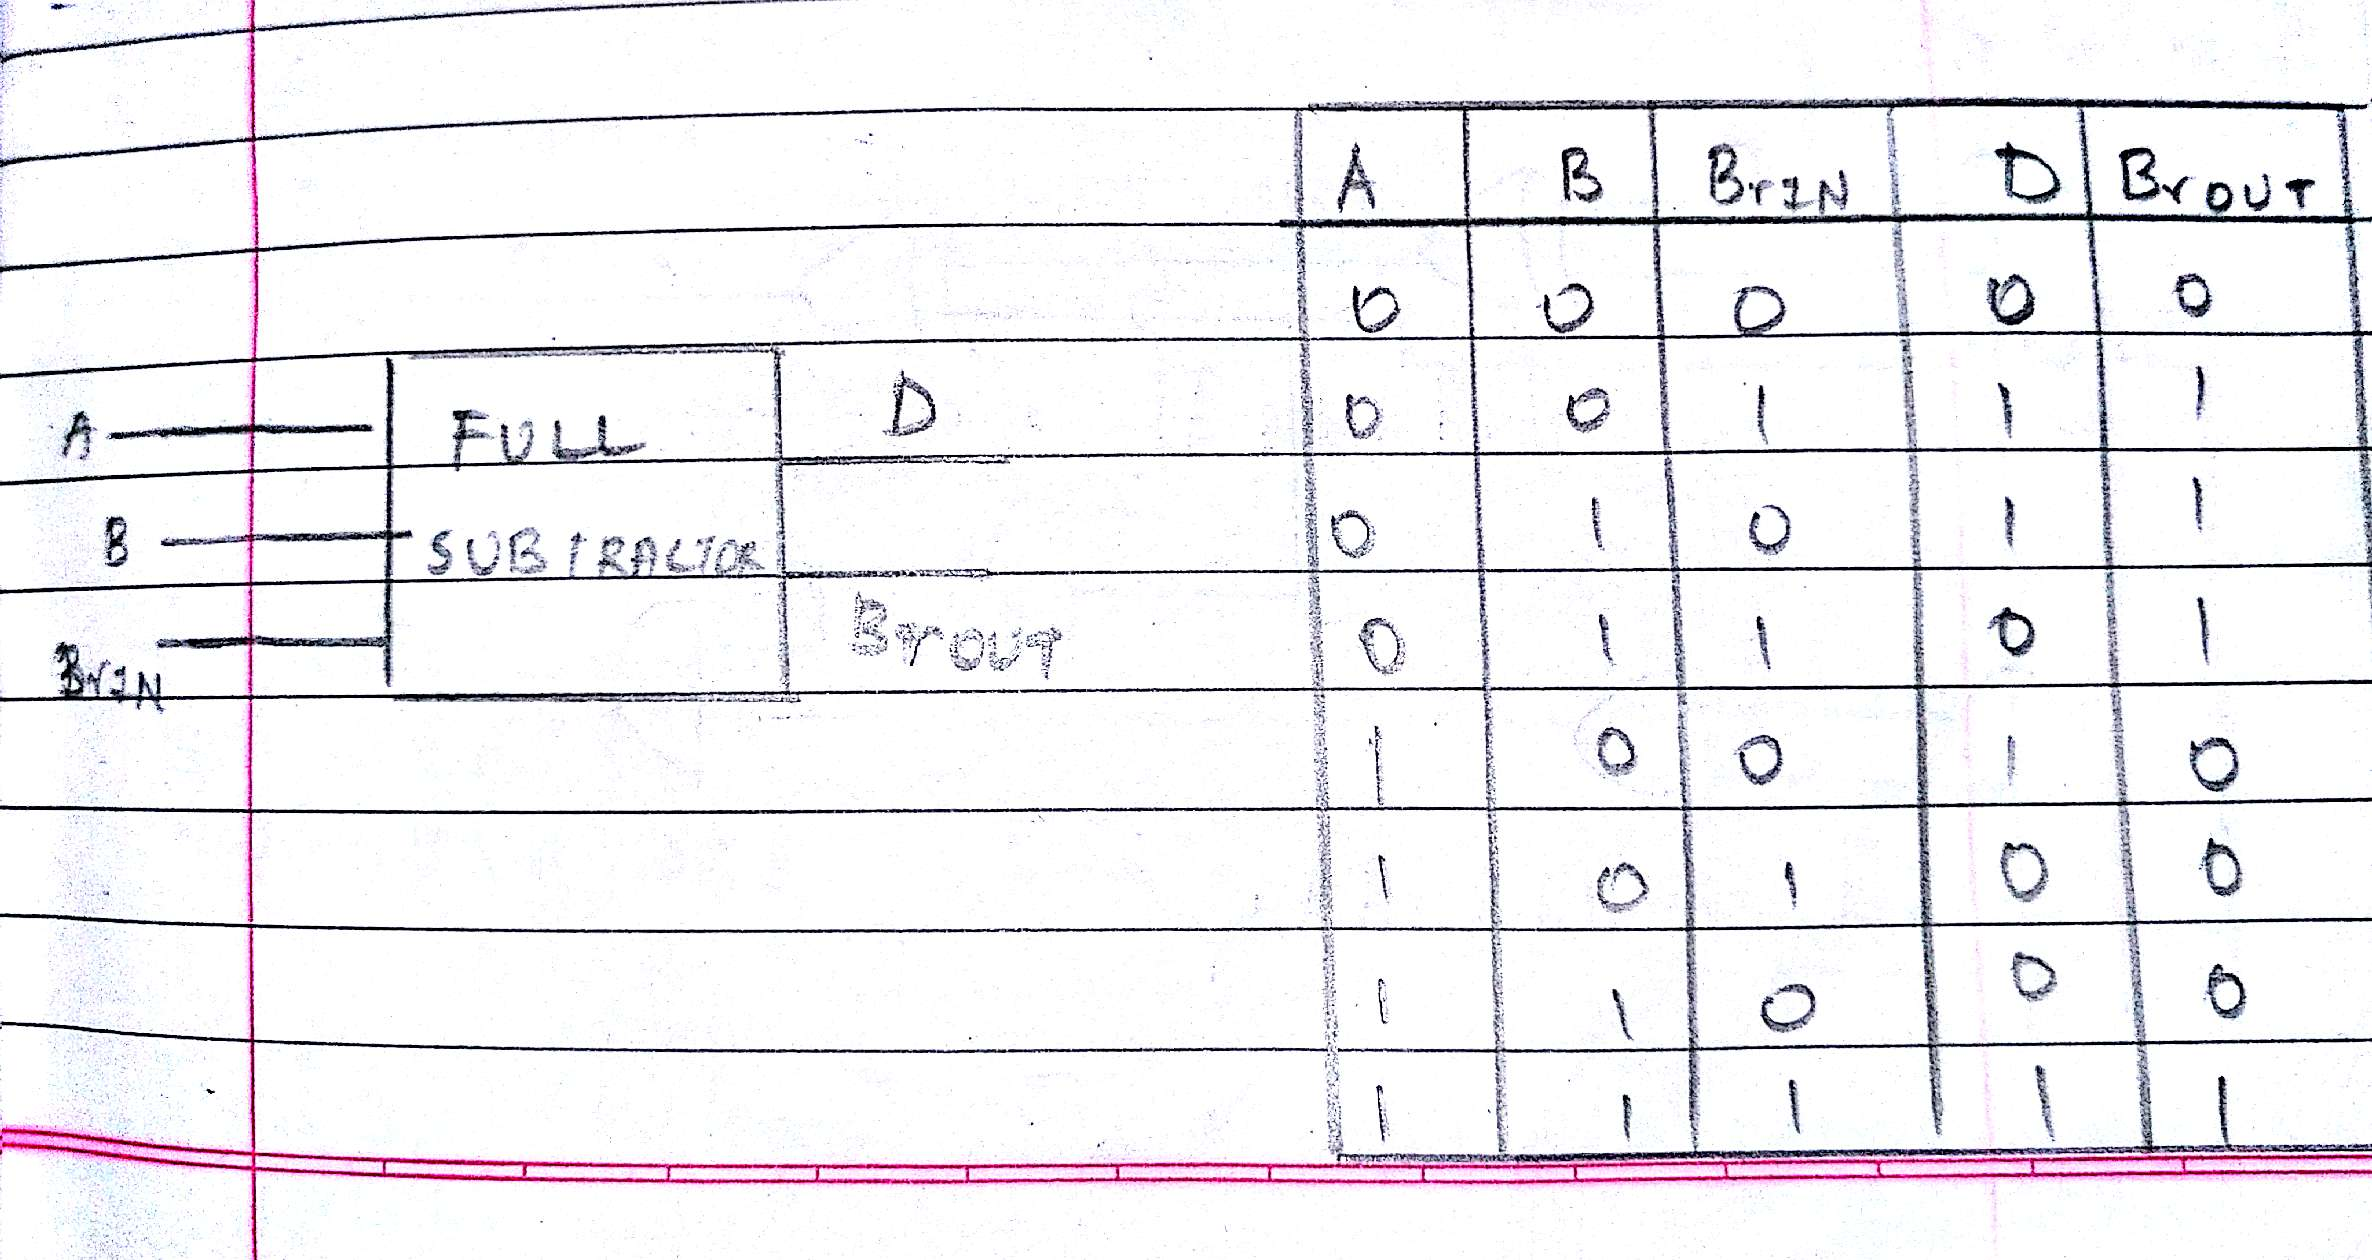 A
FULL
SUBTRACTOR
B
BrIN
D
BrOUT
A B BrIN D BrOUT
0 0 0 0 0
0 0 1 1 1
0 1 0 1 1
0 1 1 0 1
1 0 0 1 0
1 0 1 0 0
1 1 0 0 0
1 1 1 1 1